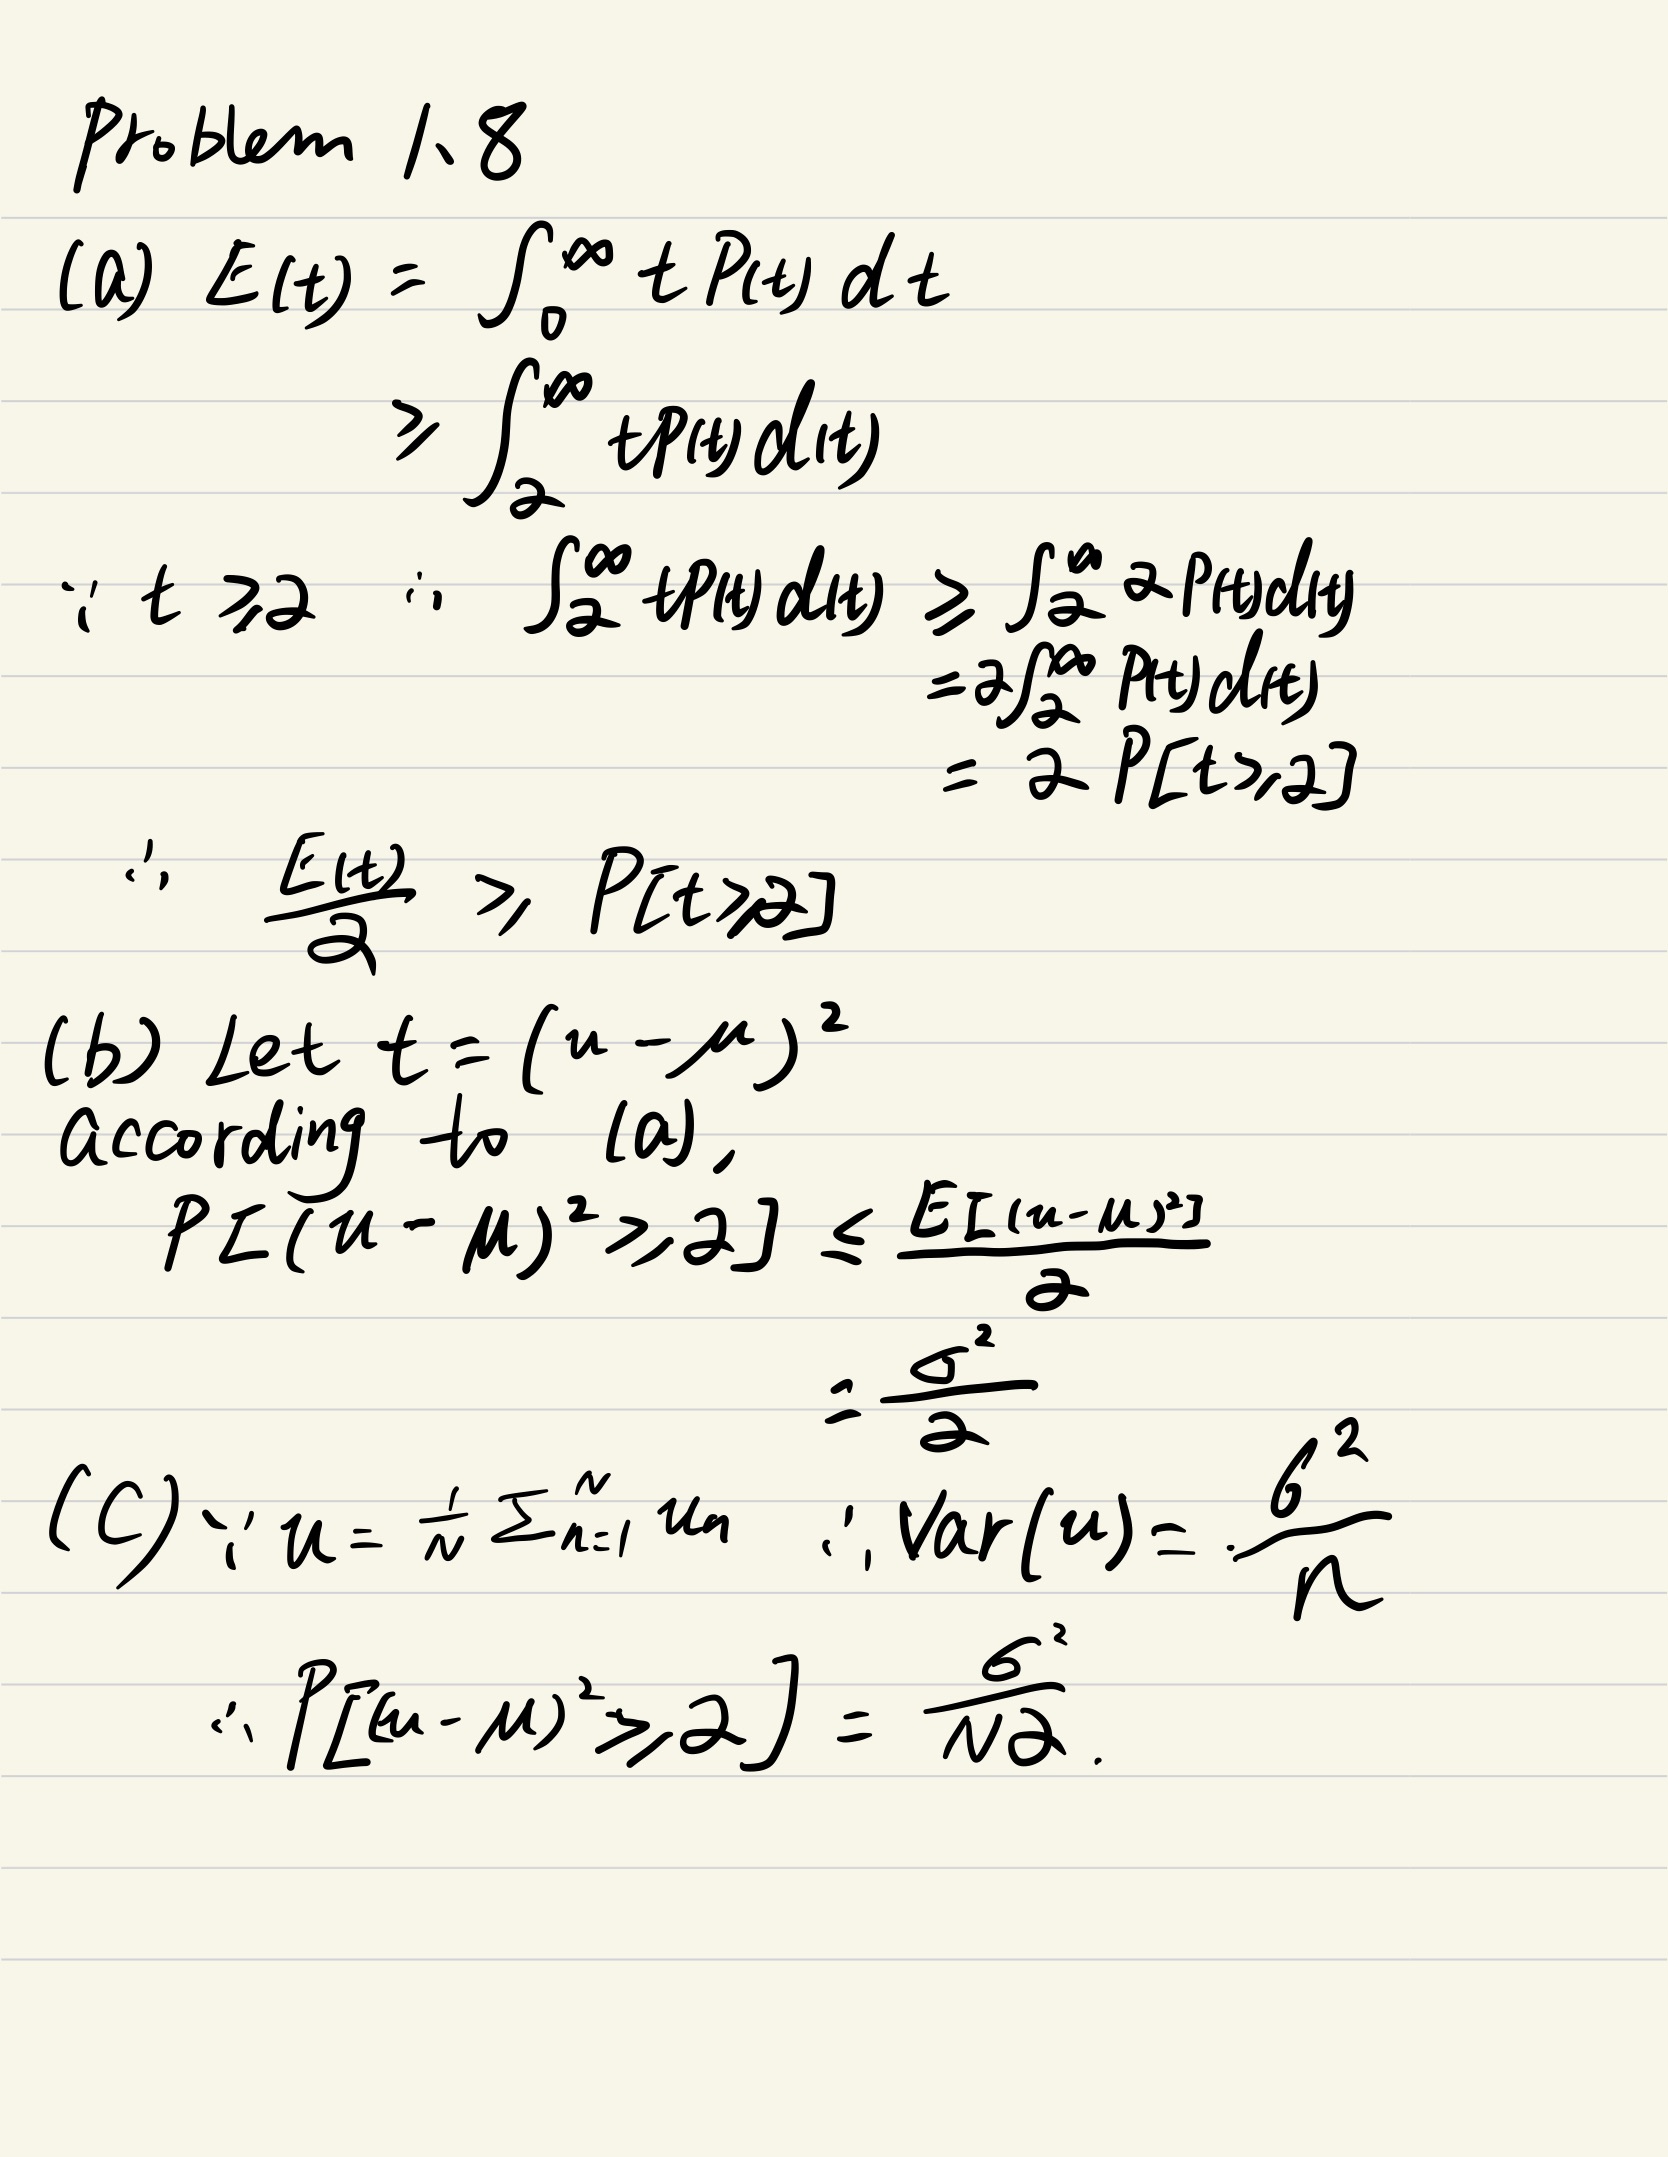 Problem 1、8
(a) E(t) = ∫₀^∞ t P(t) dt
≥ ∫₂^∞ tP(t) d(t)
∵ t ≥ 2 ∴ ∫₂^∞ tP(t) d(t) ≥ ∫₂^∞ 2 P(t) d(t)
= 2∫₂^∞ P(t) d(t)
= 2 P[t ≥ 2]
∴ E(t)/2 ≥ P[t ≥ 2]
(b) Let t = (u - μ)²
according to (a),
P[(u - μ)² ≥ 2] ≤ E[(u - μ)²]/2
= σ²/2
(C) ∵ u = 1/N Σ_{n=1}^N uₙ ∴ Var(u) = σ²/n
∴ P[(u - μ)² ≥ 2] = σ²/N2.